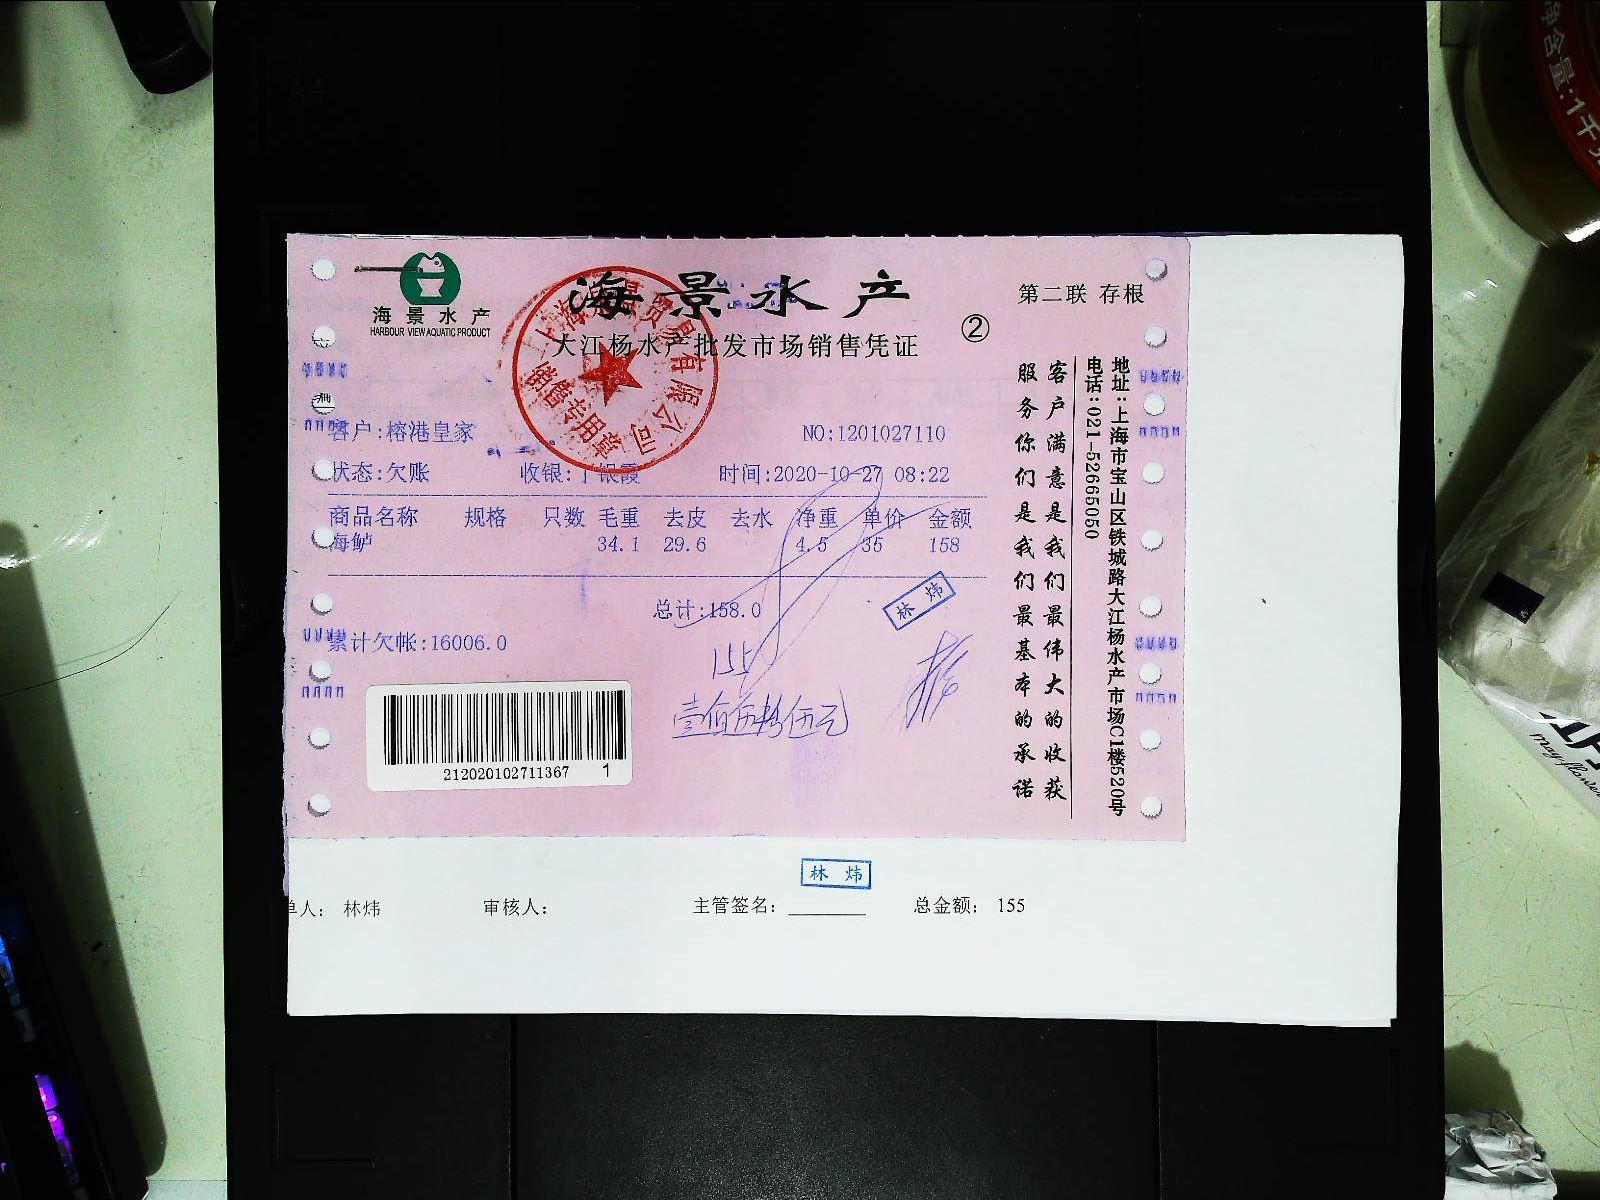 海景水产
HARBOUR VIEW AQUATIC PRODUCT
海景水产
大江杨水产批发市场销售凭证
②
第二联 存根
销售专用章
客户:榕港皇家
NO:1201027110
状态:欠账 收银:丁银霞 时间:2020-10-27 08:22
商品名称 规格 只数 毛重 去皮 去水 净重 单价 金额
海鲈 34.1 29.6 4.5 35 158
总计:158.0
林炜
累计欠帐:16006.0
155
壹佰伍拾伍元
212020102711367 1
客户满意是我们最伟大的收获
服务你们是我们最基本的承诺
地址:上海市宝山区铁城路大江杨水产市场C1楼520号
电话:021-52665050
林炜
单人: 林炜 审核人: 主管签名: 总金额: 155
净含量:1千克
may flower